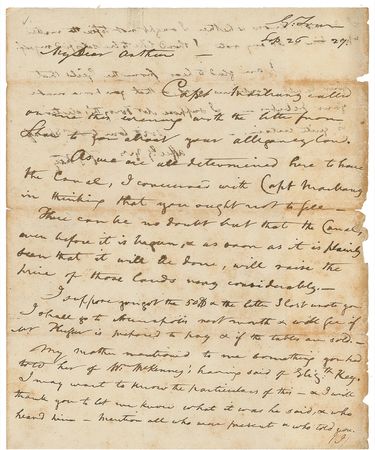 G. Town
Sep. 26 - 29.
My Dear Arthur -
Capt called
on me this evening with the letter from
to you about your allegany land.
As we are all determined here to have
the Canal, I concurred with Capt
in thinking that you ought not to sell -
There can be no doubt but that the Canal,
even before it is begun, & as soon as it is plainly
seen that it will be done, will raise the
price of those lands very considerably. -
I suppose you got the 50$ & the letter I last wrote you
I shall go to Annapolis next month & will see if
Mr is prepared to pay & if the tables are sold -
My mother mentioned to me something you had
told her of Mr McKenney's having said of Elizth Key.
I may want to know the particulars of this - & I will
thank you to let me know what it was he said, & who
heard him - Mention all who were present & who told you.